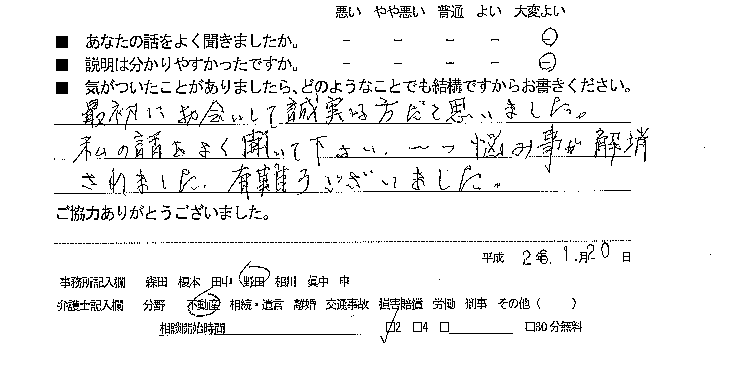 悪い やや悪い 普通 よい 大変よい
■ あなたの話をよく聞きましたか。 － － － － －
■ 説明は分かりやすかったですか。 － － － － －
■ 気がついたことがありましたら、どのようなことでも結構ですからお書きください。
最初にお会いして誠実な方だと思いました。
私の話をよく聞いて下さい、一つ悩み事が解消
されました。有難うございました。
ご協力ありがとうございました。
平成 26. 1.月20 日
事務所記入欄 森田 榎本 田中 野田 相川 眞中 申
弁護士記入欄 分野 不動産 相続・遺言 離婚 交通事故 損害賠償 労働 刑事 その他（ ）
相談開始時間 □2 □4 □ □30分無料